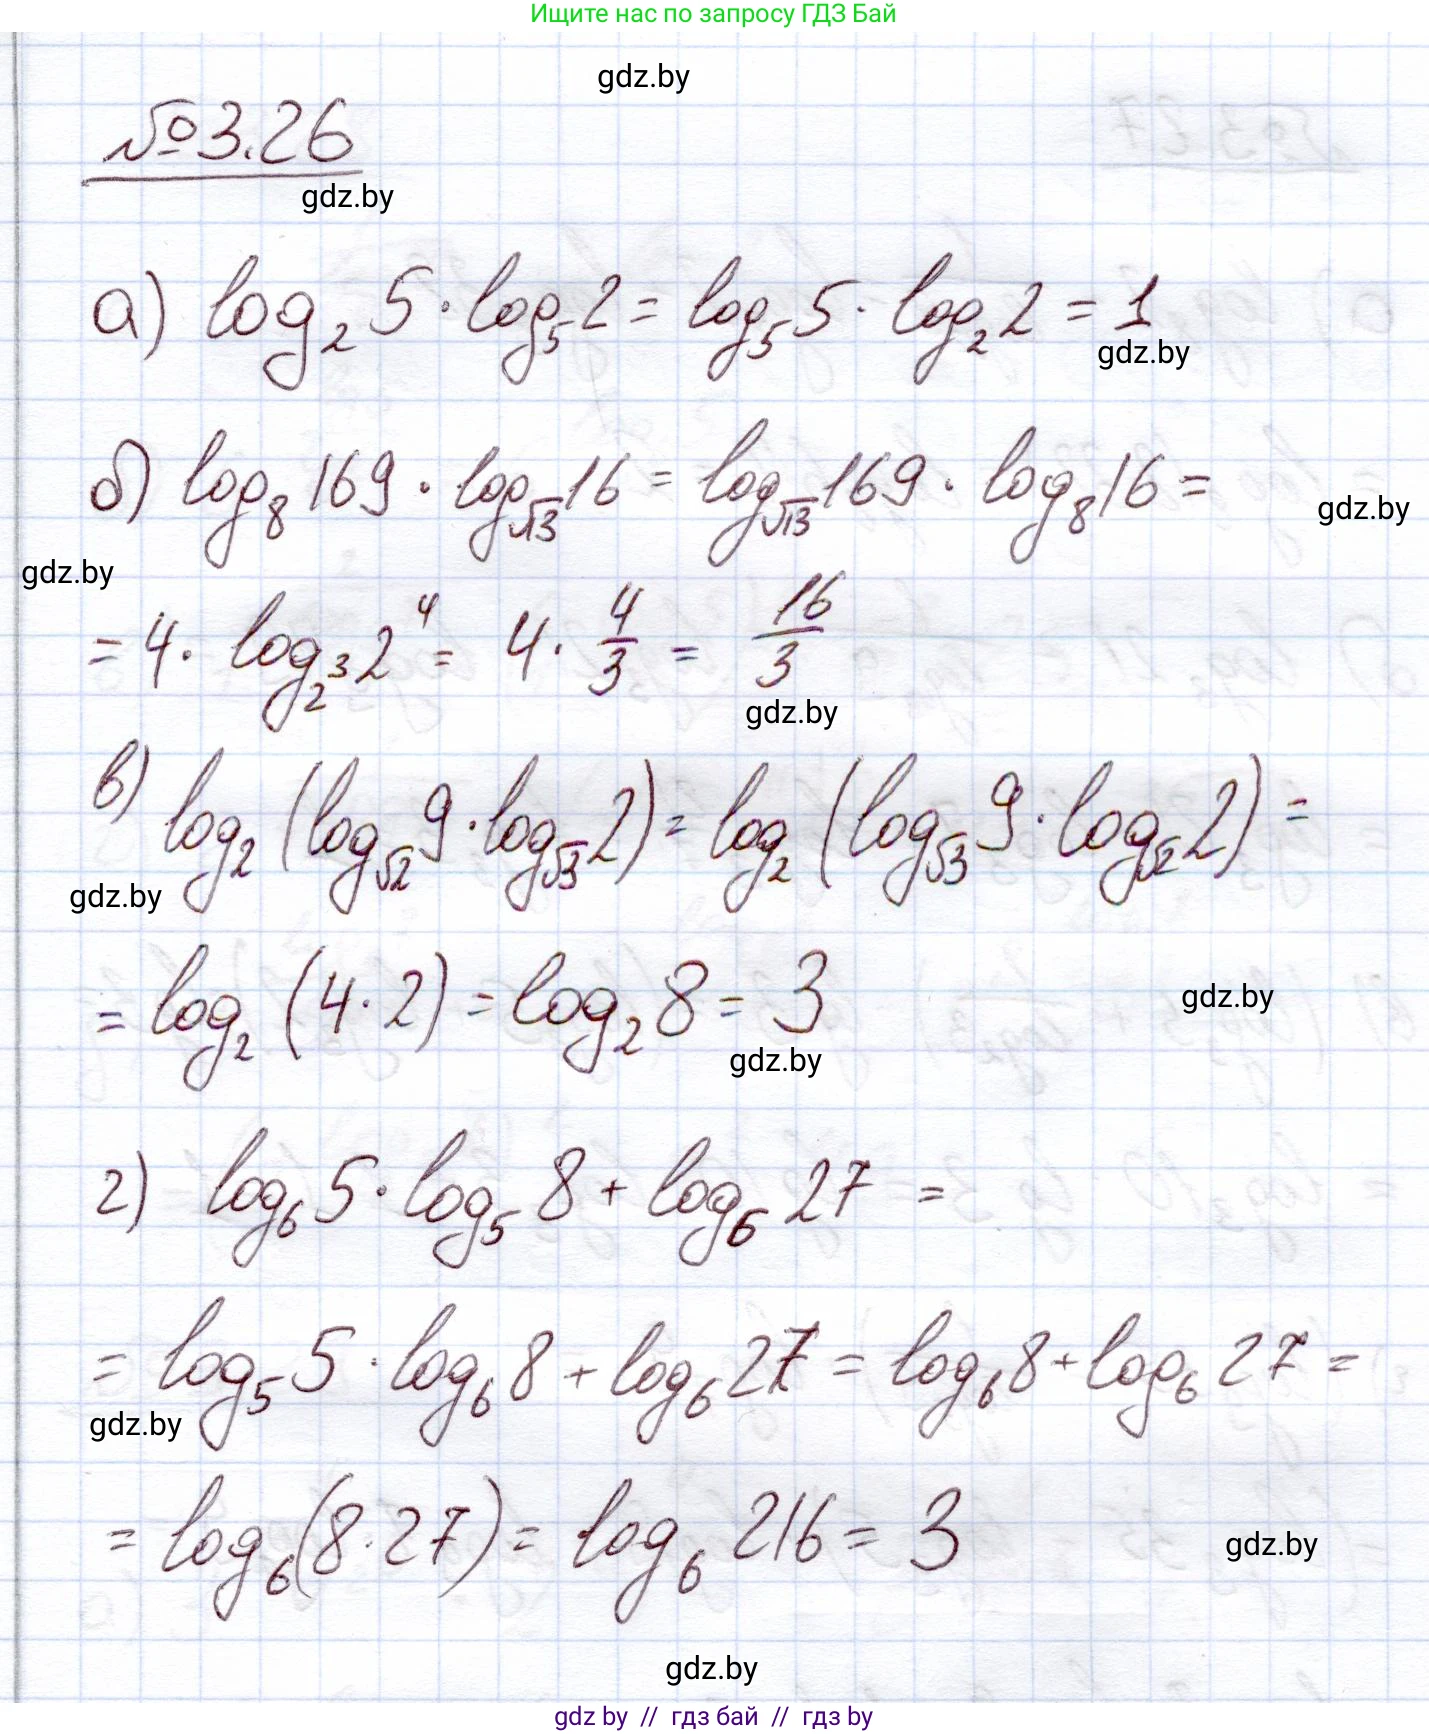 Ищите нас по запросу ГДЗ Бай
gdz.by
№3.26
gdz.by
а) log₂ 5 · log₅ 2 = log₅ 5 · log₂ 2 = 1
gdz.by
б) log₈ 169 · log_√13 16 = log_√13 169 · log₈ 16 =
gdz.by
gdz.by
= 4 · log_2³ 2⁴ = 4 · 4/3 = 16/3
gdz.by
в) log₂ (log_√2 9 · log_√3 2) = log₂ (log_√3 9 · log_√2 2) =
gdz.by
= log₂ (4 · 2) = log₂ 8 = 3
gdz.by
gdz.by
г) log₆ 5 · log₅ 8 + log₆ 27 =
= log₅ 5 · log₆ 8 + log₆ 27 = log₆ 8 + log₆ 27 =
gdz.by
= log₆ (8 · 27) = log₆ 216 = 3
gdz.by
gdz.by
gdz by // гдз бай // гдз by